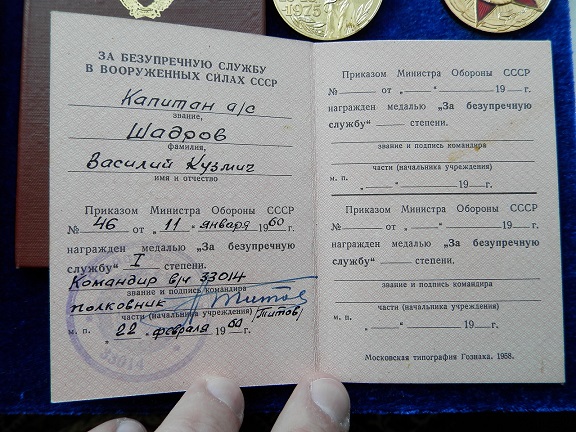 1975
ЗА БЕЗУПРЕЧНУЮ СЛУЖБУ
В ВООРУЖЕННЫХ СИЛАХ СССР
Капитан а/с
звание,
Шадров
фамилия,
Василий Кузмич
имя и отчество
Приказом Министра Обороны СССР
№ 46 от „11" января 1960 г.
награжден медалью „За безупречную
службу" I степени.
Командир в/ч 33014
звание и подпись командира
полковник Титов
части (начальника учреждения) /Титов/
м. п. „22" февраля 1960 г.
33014
Приказом Министра Обороны СССР
№ от „ " 19 г.
награжден медалью „За безупречную
службу" степени.
звание и подпись командира
части (начальника учреждения)
м. п. „ " 19 г.
Приказом Министра Обороны СССР
№ от „ " 19 г.
награжден медалью „За безупречную
службу" степени.
звание и подпись командира
части (начальника учреждения)
м. п. „ " 19 г.
Московская типография Гознака. 1958.